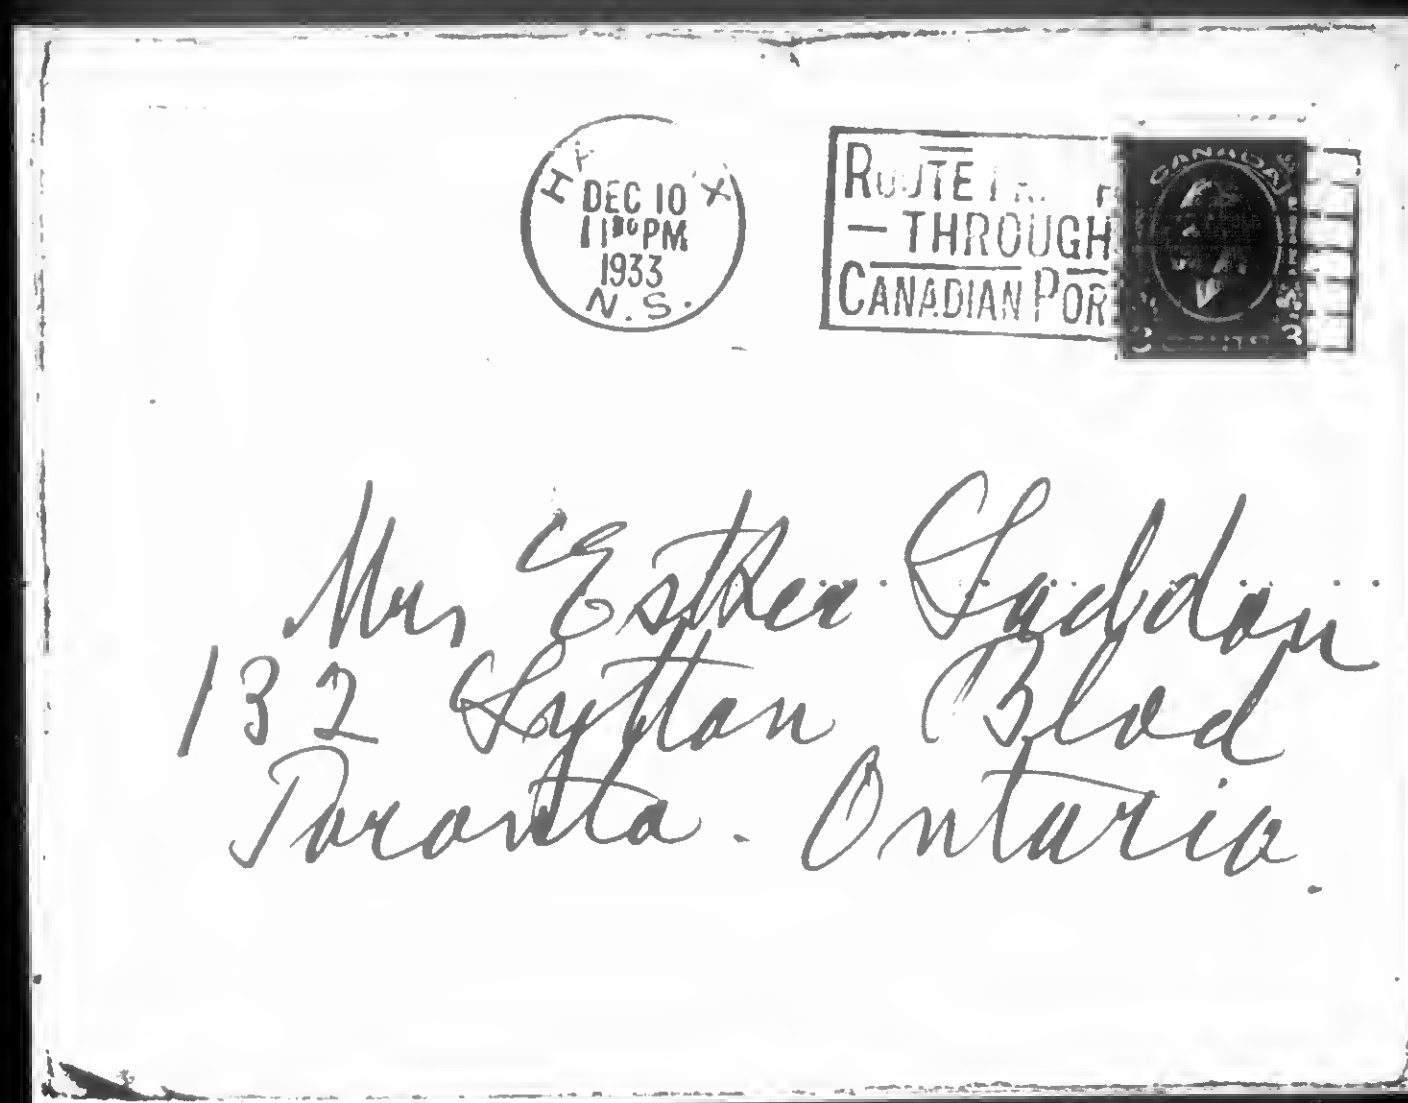 DEC 10
11 30 PM
1933
N.S.
ROUTE
— THROUGH
CANADIAN POR
CANADA
CENTS
Mrs Esther Saddon
132 Lytton Blvd
Toronto. Ontario.